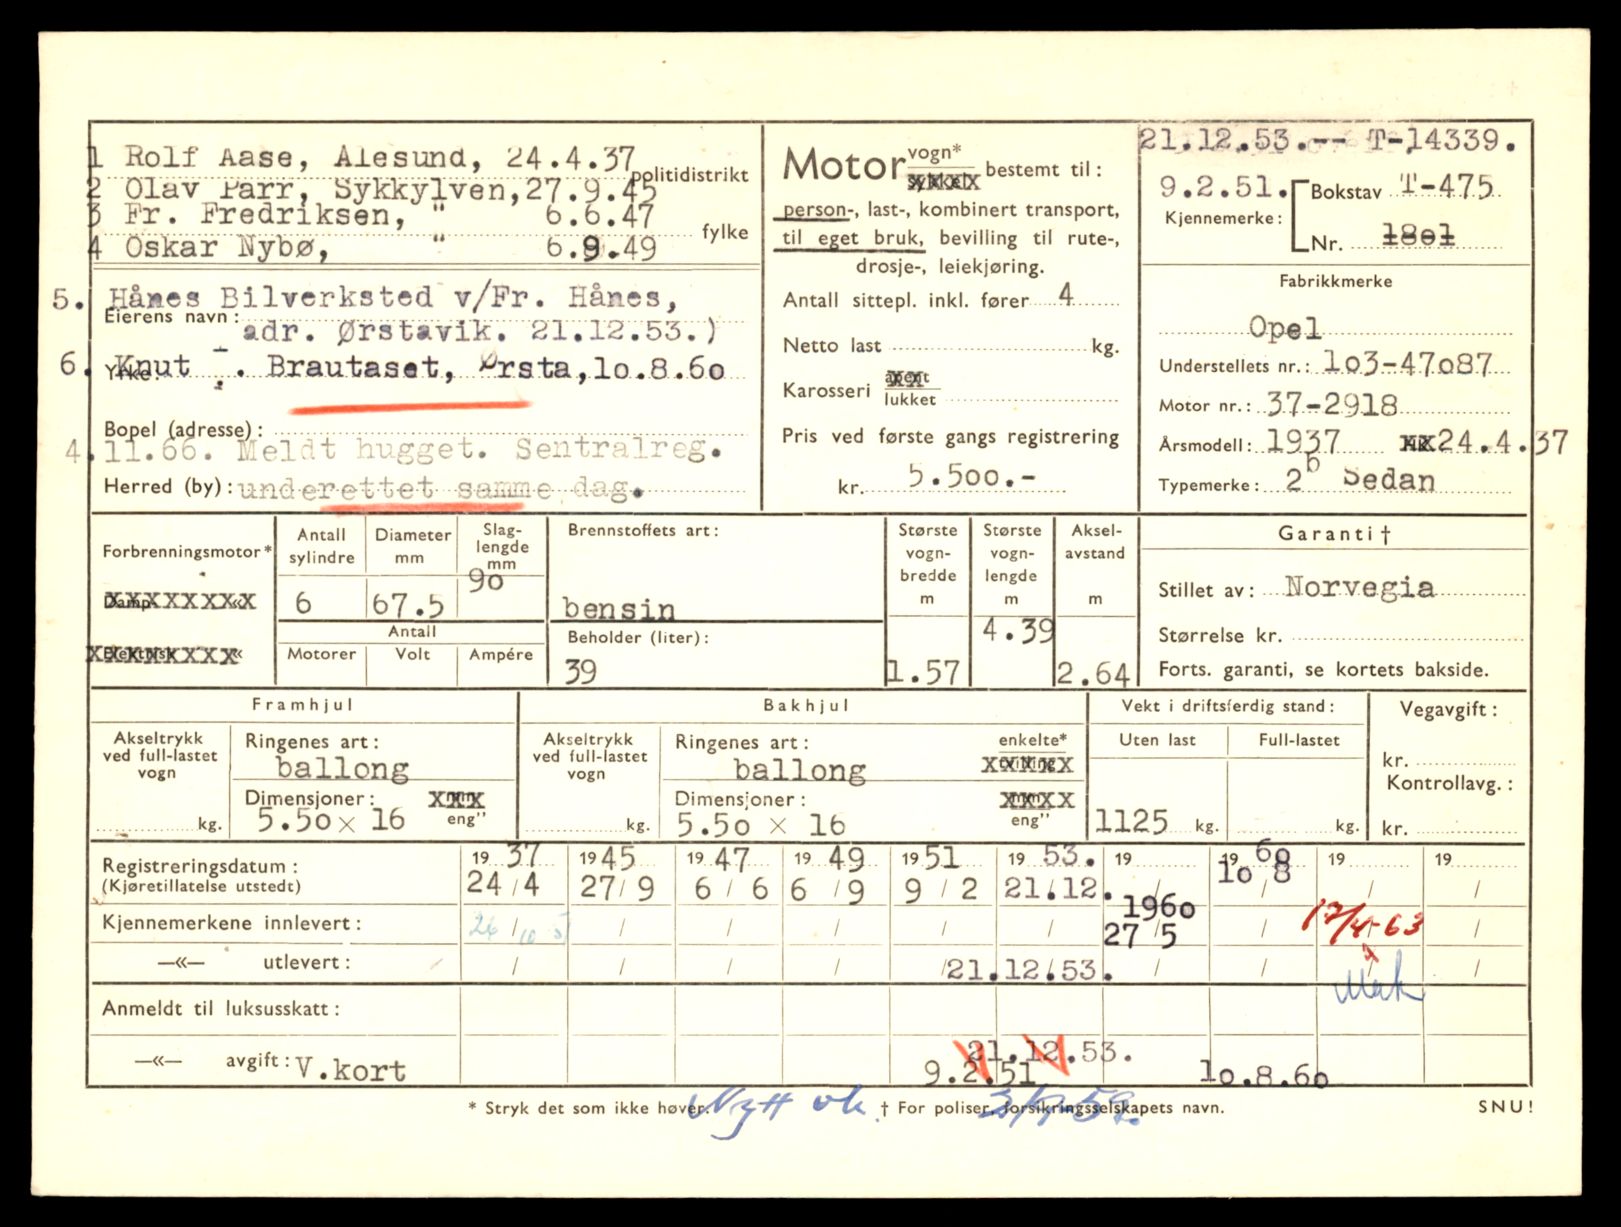 1 Rolf Aase, Ålesund, 24.4.37
politidistrikt
2 Olav Parr, Sykkylven, 27.9.45
3 Fr. Fredriksen, " 6.6.47
fylke
4 Oskar Nybø, " 6.9.49
5. Hånes Bilverksted v/Fr. Hånes,
Eierens navn:
adr. Ørstavik. 21.12.53.)
6. Knut . Brautaset, Ørsta, 10.8.60
Yrke:
Bopel (adresse):
4.11.66. Meldt hugget. Sentralreg.
Herred (by): underettet samme dag.
Motor vogn* bestemt til:
person-, last-, kombinert transport,
til eget bruk, bevilling til rute-,
drosje-, leiekjøring.
Antall sittepl. inkl. fører 4
Netto last kg.
Karosseri åpent
lukket
Pris ved første gangs registrering
kr. 5.500.-
21.12.53.-- T-14339.
9.2.51. Bokstav T-475
Kjennemerke:
Nr. 1801
Fabrikkmerke
Opel
Understellets nr.: 103-47087
Motor nr.: 37-2918
Årsmodell: 1937 24.4.37
Typemerke: 2 b Sedan
Forbrenningsmotor*
Damp «
Elektrisk «
Antall sylindre
6
Diameter mm
67.5
Slag-lengde mm
90
Antall
Motorer Volt Ampére
Brennstoffets art:
bensin
Beholder (liter):
39
Største vogn-bredde m
1.57
Største vogn-lengde m
4.39
Aksel-avstand m
2.64
Garanti †
Stillet av: Norvegia
Størrelse kr.
Forts. garanti, se kortets bakside.
Framhjul
Akseltrykk ved full-lastet vogn
kg.
Ringenes art:
ballong
Dimensjoner:
5.50 x 16 eng"
Bakhjul
Akseltrykk ved full-lastet vogn
kg.
Ringenes art: enkelte*
ballong tvilling
Dimensjoner:
5.50 x 16 eng"
Vekt i driftsferdig stand:
Uten last Full-lastet
1125 kg. kg.
Vegavgift:
kr.
Kontrollavg.:
kr.
Registreringsdatum: 19 37 19 45 19 47 19 49 19 51 19 53. 19 19 60 19 19
(Kjøretillatelse utstedt) 24/4 27/9 6/6 6/9 9/2 21.12. 10/8
Kjennemerkene innlevert: 26/10 1960 27/5 17/4-63
—«— utlevert: 21.12.53.
Anmeldt til luksusskatt:
—«— avgift: V.kort 9.2.51 21.12.53. 10.8.60
* Stryk det som ikke høver. † For poliser, forsikringsselskapets navn. SNU!
Nytt vk.